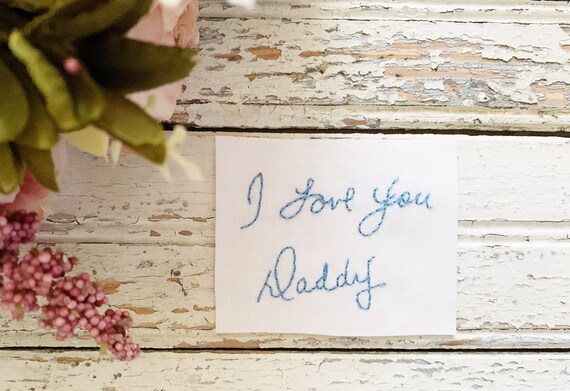 I Love you
Daddy